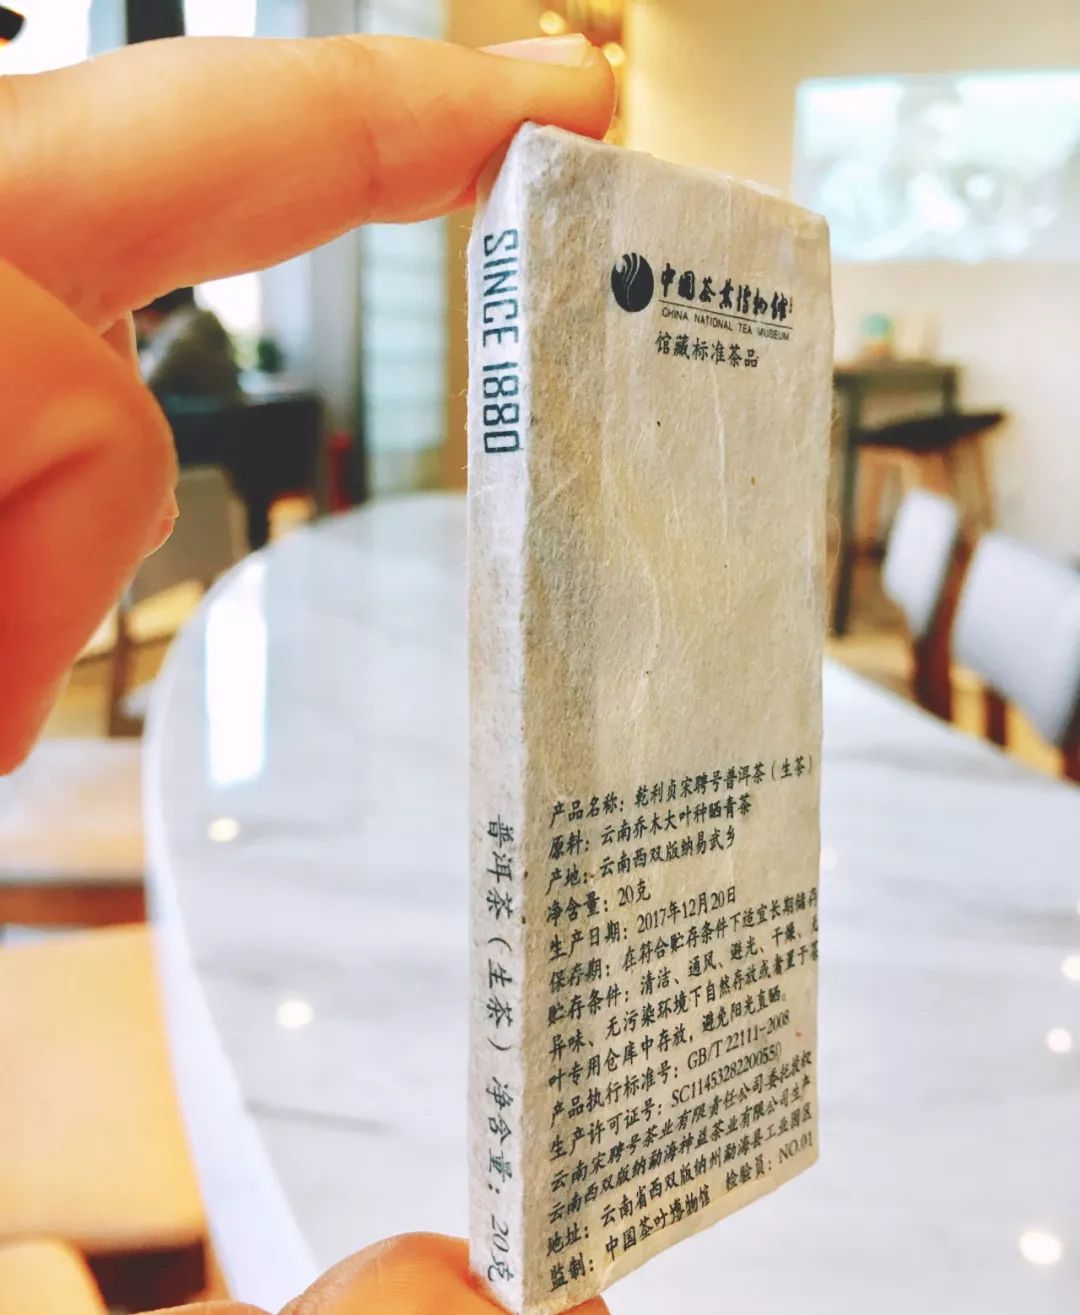 SINCE 1880
普洱茶（生茶）净含量：20克
中国茶叶博物馆
CHINA NATIONAL TEA MUSEUM
馆藏标准茶品
产品名称：乾利贞宋聘号普洱茶（生茶）
原料：云南乔木大叶种晒青茶
产地：云南西双版纳易武乡
净含量：20克
生产日期：2017年12月20日
保存期：在符合贮存条件下适宜长期储存
贮存条件：清洁、通风、避光、干燥、无
异味、无污染环境下自然存放或者置于茶
叶专用仓库中存放，避免阳光直晒。
产品执行标准号：GB/T 22111-2008
生产许可证号：SC11453282200550
云南宋聘号茶业有限责任公司委托授权
云南西双版纳勐海神益茶业有限公司生产
地址：云南省西双版纳州勐海县工业园区
监制：中国茶叶博物馆 检验员：NO.01